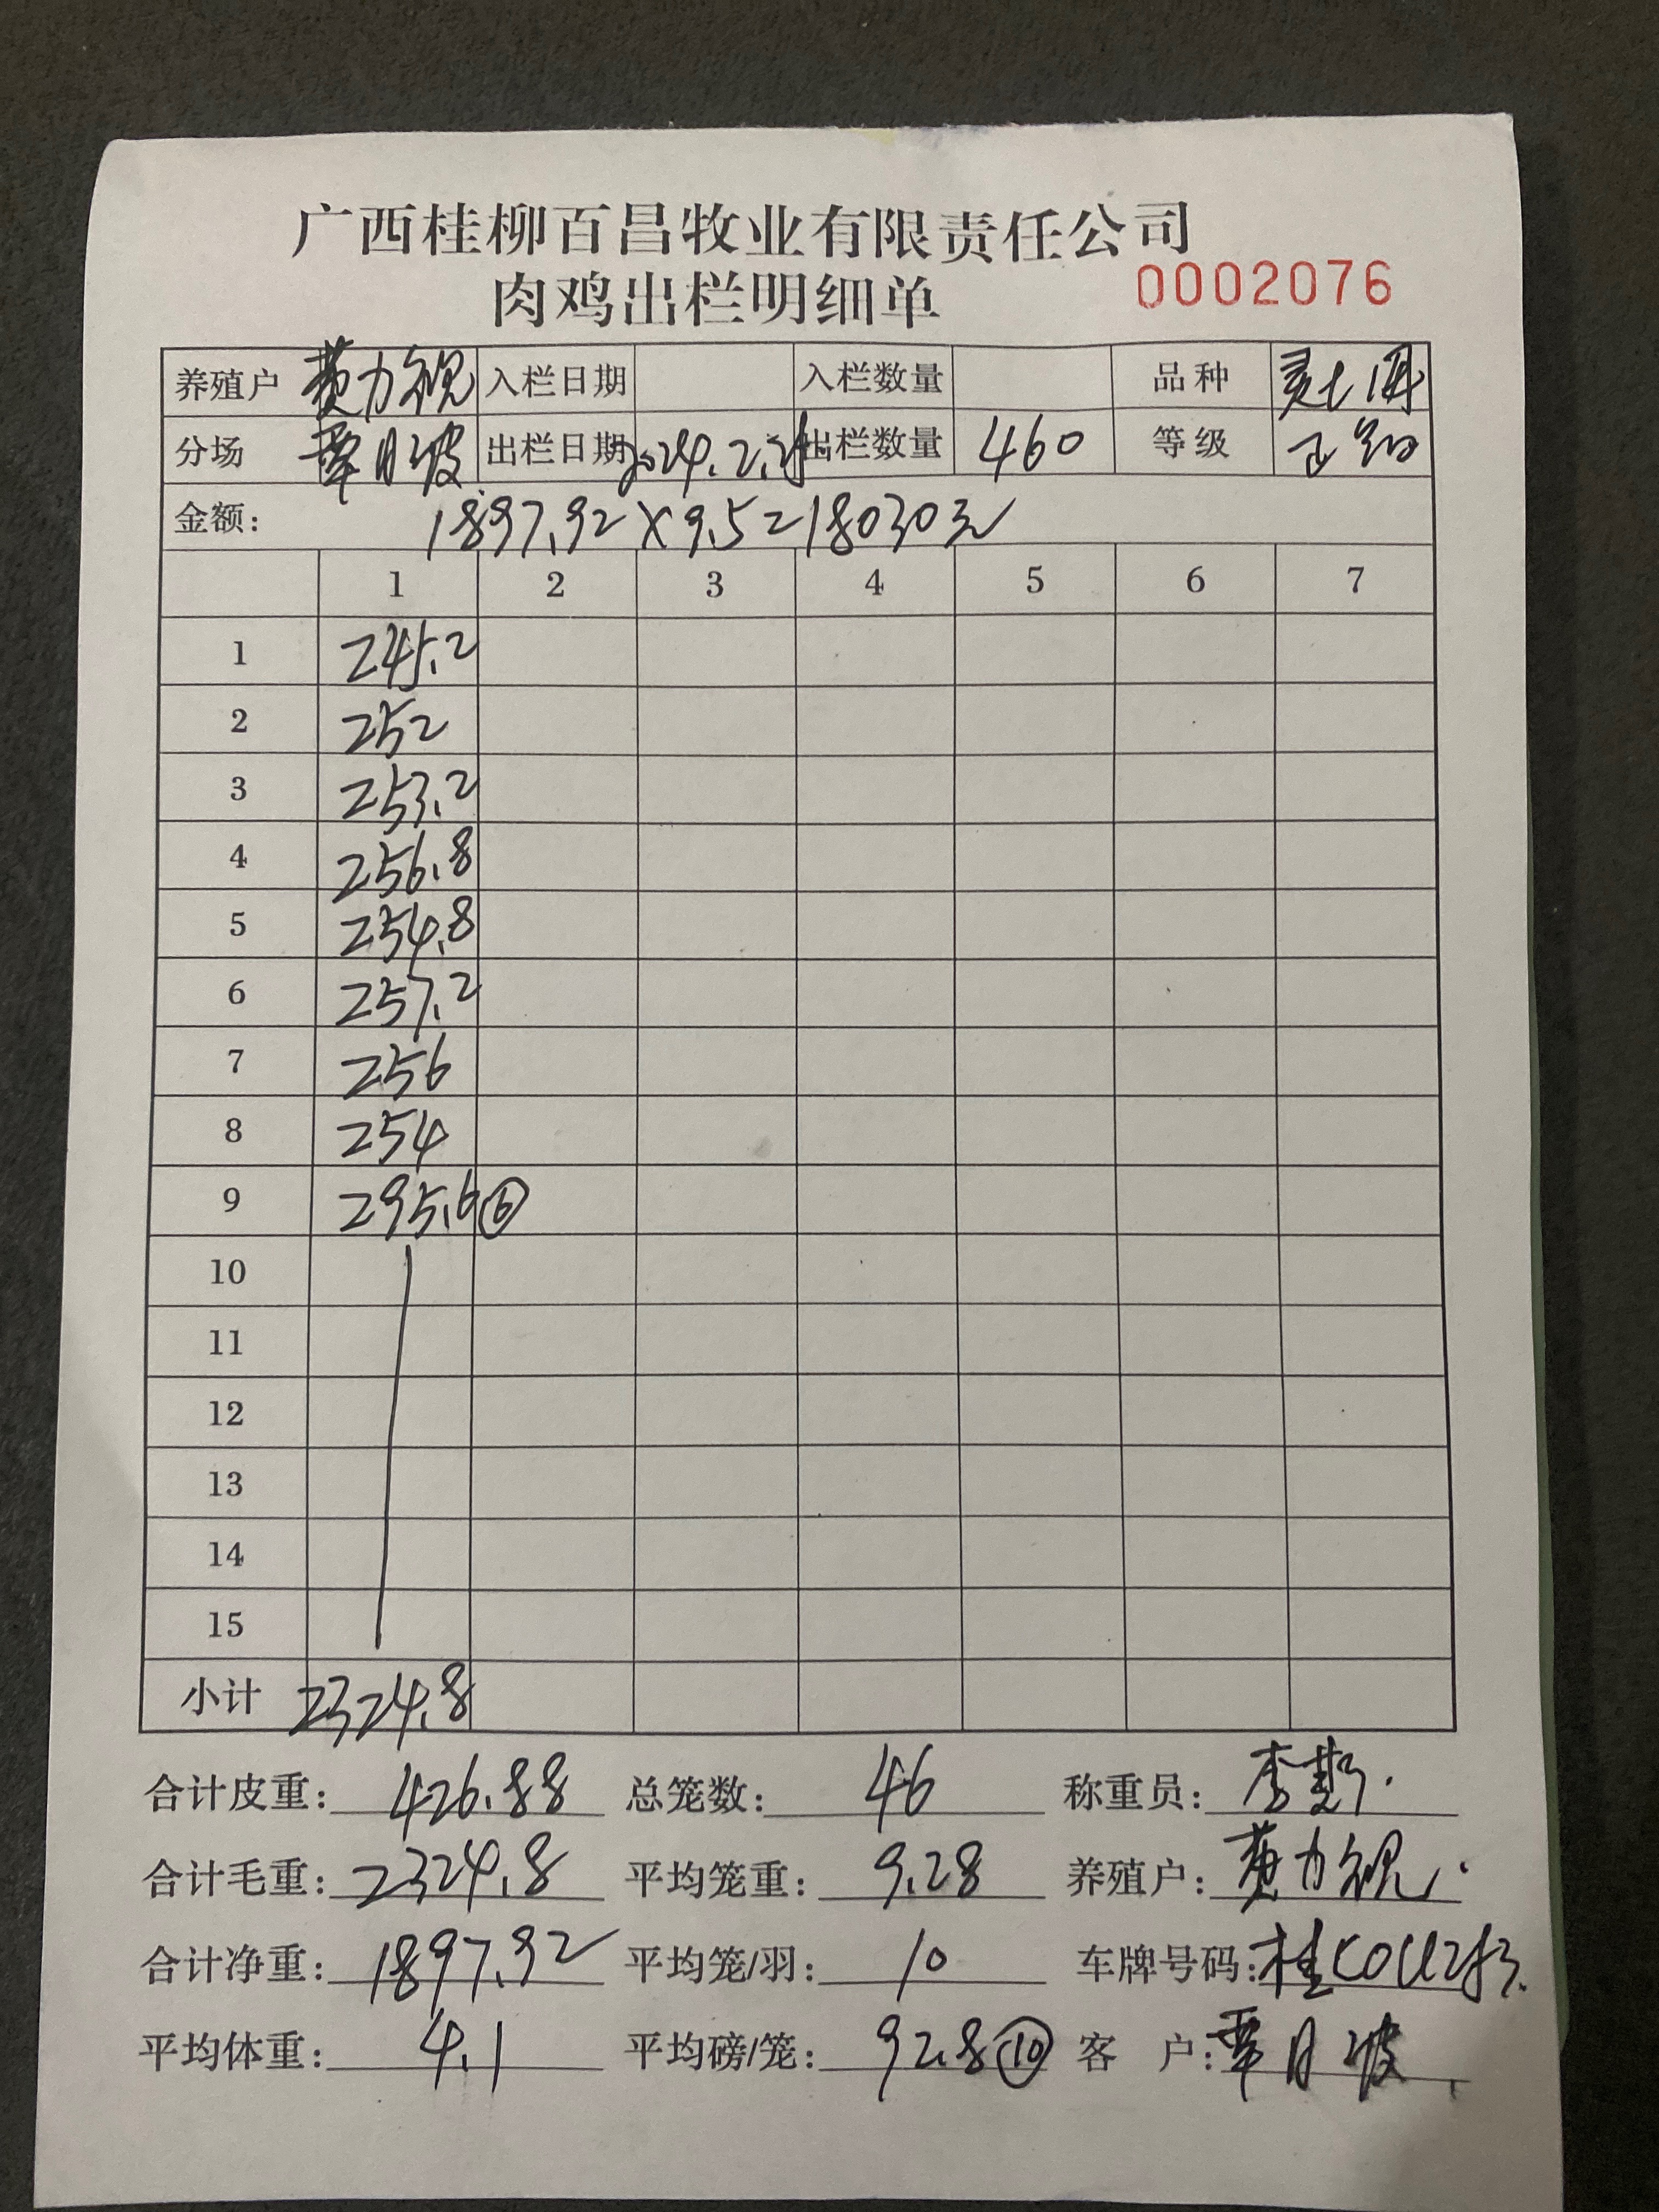 广西桂柳百昌牧业有限责任公司
肉鸡出栏明细单 0002076
养殖户 黄力视 入栏日期 入栏数量 品种
分场 覃月波 出栏日期 2024.2.21 出栏数量 460 等级
金额: 1897.92×9.5=18030元
1 2 3 4 5 6 7
1 245.2
2 252
3 253.2
4 256.8
5 254.8
6 257.2
7 256
8 254
9 295.6 ⑥
10
11
12
13
14
15
小计 2324.8
合计皮重: 426.88 总笼数: 46 称重员: 李
合计毛重: 2324.8 平均笼重: 9.28 养殖户: 黄力视
合计净重: 1897.92 平均笼/羽: 10 车牌号码:
平均体重: 4.1 平均磅/笼: 92.8 ⑩ 客 户: 覃月波